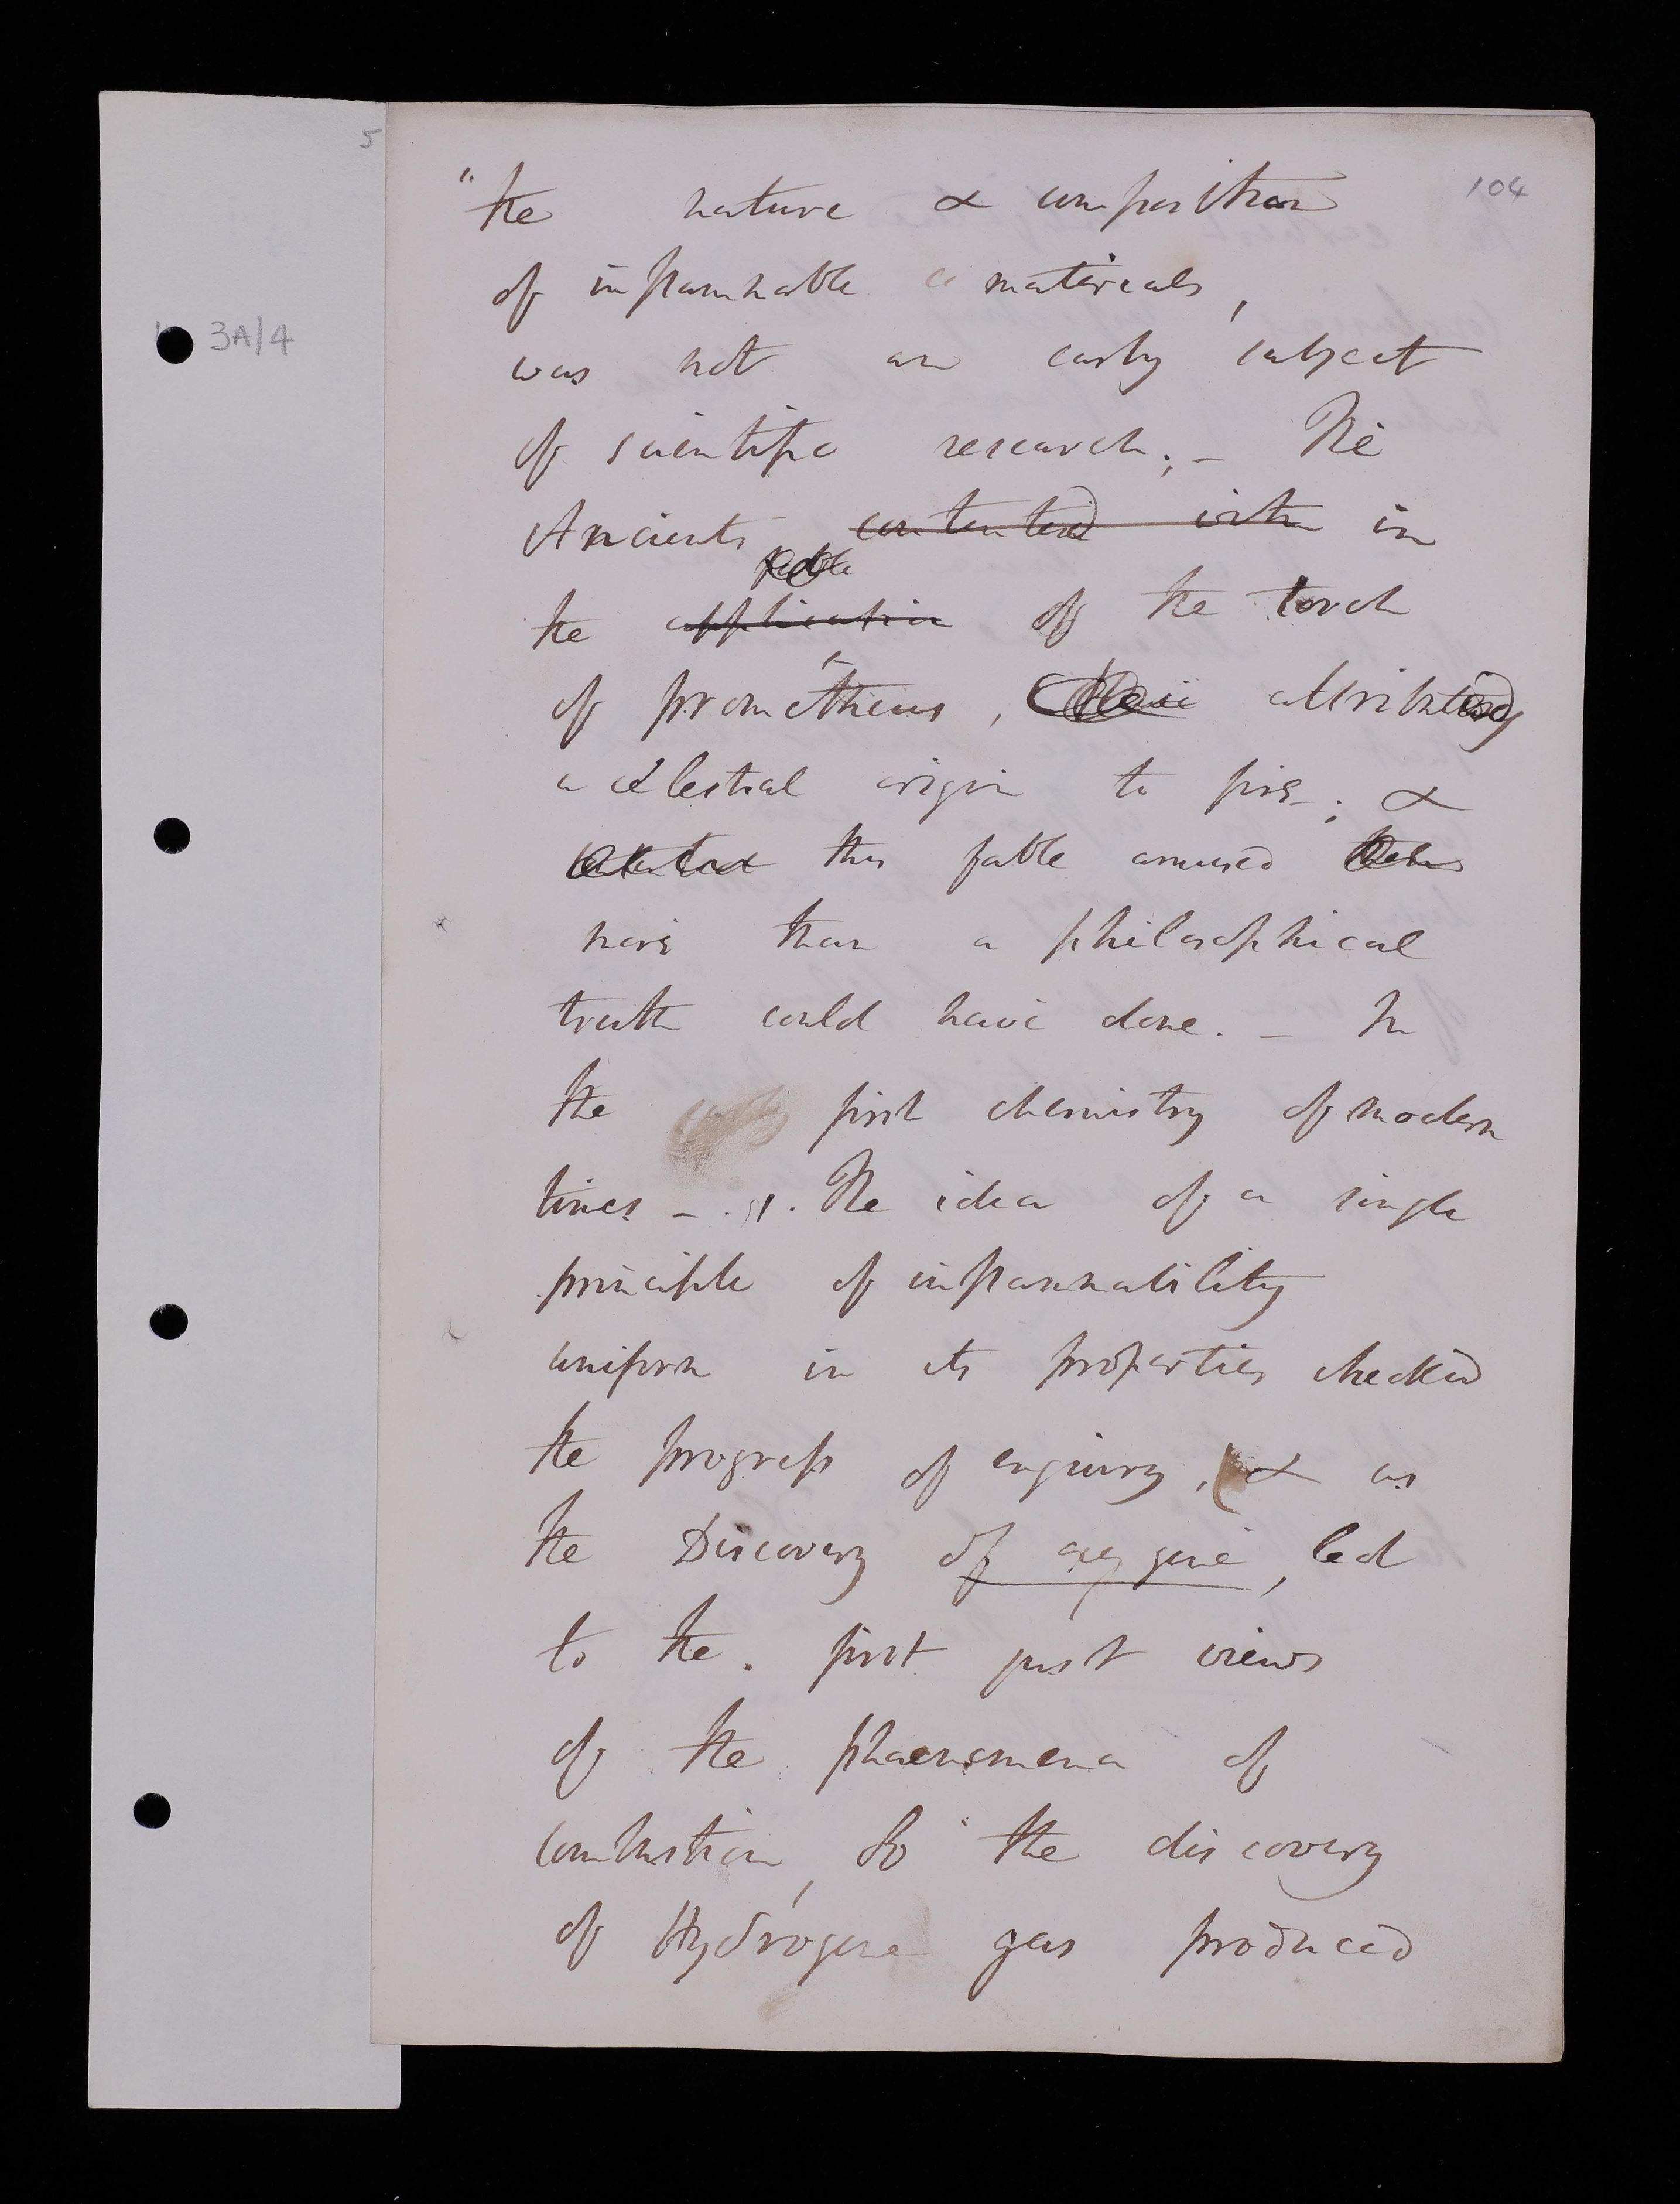 5
104
3A/4
"The nature & composition
of inflammable materials,
was not an early subject
of scientific research; – The
Ancients contented with in
fable
the application of the torch
of prometheus, attributing
a celestial origin to fire; &
this fable amused them
more than a philosophical
truth could have done. – In
the early first chemistry of modern
times – . The idea of a single
principle of inflammability
uniform in its properties checked
the progress of enquiry, & as
the Discovery of oxygene, led
to the. first just views
of the phaenomena of
combustion, So the discovery
of Hydrogene gas produced